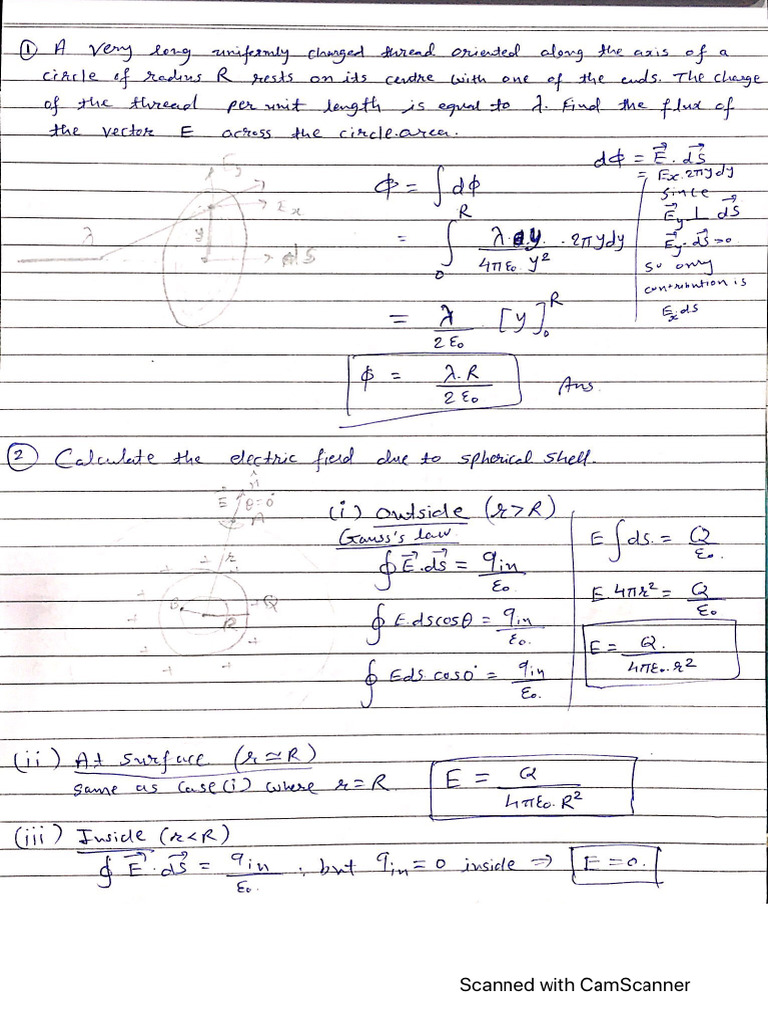 ① A very long uniformly charged thread oriented along the axis of a
circle of radius R rests on its centre with one of the ends. The charge
of the thread per unit length is equal to λ. Find the flux of
the vector E across the circle area.
Ey
Ex
λ
y
dS
ϕ = ∫dϕ
= ∫₀ᴿ λ.y/4πε₀ y² . 2πydy
= λ/2ε₀ [y]₀ᴿ
ϕ = λ.R/2ε₀ Ans.
dϕ = E⃗.dS⃗
= Ex.2πydy
since
E⃗y ⊥ dS⃗
E⃗y.dS⃗ = 0
so only
contribution is
Exds
② Calculate the electric field due to spherical shell.
n̂
E⃗ θ=0°
A
r
B
Q
R
+ + + + + + +
(i) Outside (r>R)
Gauss's law
∮E⃗.ds⃗ = qin/ε₀
∮E.dscosθ = qin/ε₀.
∮Eds.cos0° = qin/ε₀.
E∫ds. = Q/ε₀.
E 4πr² = Q/ε₀
E = Q./4πε₀.r²
(ii) At surface (r≃R)
same as case(i) where r=R
E = Q/4πε₀.R²
(iii) Inside (r<R)
∮E⃗.ds⃗ = qin/ε₀. , but qin=0 inside ⇒ E=0.
Scanned with CamScanner